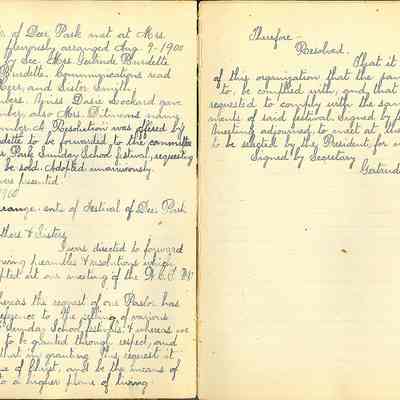 of Deer Park met at Mrs.
previously arranged Aug. 9-1900
by Sec. Mrs Gertrude Burdette
Burdette. Communications read
and Sister Smith.
Miss Dasie Lockard gave
also Mrs. Ditman's naming
Resolution was offered by
to be forwarded to the committee
Park Sunday School festival, requesting
be sold. Adopted unanimously.
were presented.
1900
arrange-ents of Festival of Deer Park
& Sisters
I was directed to forward
preambles & resolutions which
at our meeting of the W.C.T.U.
the request of our Pastor has
reference to the selling of various
Sunday School festivals, & whereas we
to be granted through respect, and
that in granting this request it
of Christ, and be the means of
to a higher plane of living
Therefore -
Resolved. That it
of this organization that the
to, be complied with, and that
requested to comply with the
ments of said festival. Signed by
Meeting adjourned, to meet at
to be selected by the President for
Signed by Secretary
Gertrude